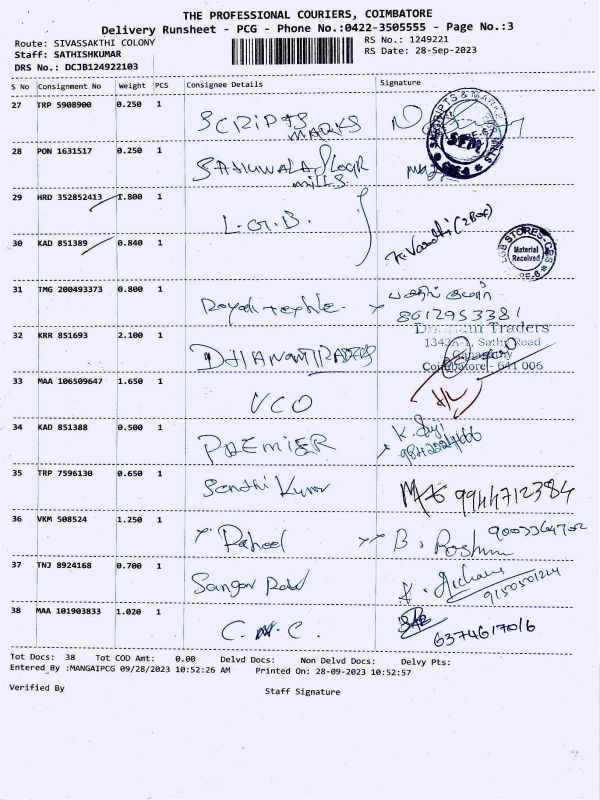 THE PROFESSIONAL COURIERS, COIMBATORE
Delivery Runsheet - PCG - Phone No.:0422-3505555 - Page No.:3
Route: SIVASSAKTHI COLONY RS No.: 1249221
Staff: SATHISHKUMAR RS Date: 28-Sep-2023
DRS No.: DCJB124922103
S No Consignment No Weight PCS Consignee Details Signature
27 TRP 5908900 0.250 1 SCRIPTS
MARKS
28 PON 1631517 0.250 1
MILLS
29 HRD 352852413 1.800 1 L.G.B.
30 KAD 851389 0.840 1 K. Vasathi (2 Box)
LGB STORES-CBS
Material
Received
31 TMG 200493373 0.800 1 Royal textile
8012953381
32 KRR 851693 2.100 1 DHANAM TRADERS Dhanam Traders
1343A-1, Sathy Road
Ganapathy
Coimbatore - 641 006
33 MAA 106509647 1.650 1 VCO
34 KAD 851388 0.500 1 PREMIER
35 TRP 7596130 0.650 1 Senthi Kumar 9944712384
36 VKM 508524 1.250 1 9003364702
37 TNJ 8924168 0.700 1
9150501224
38 MAA 101903833 1.020 1 C.M.C.
6374617016
Tot Docs: 38 Tot COD Amt: 0.00 Delvd Docs: Non Delvd Docs: Delvy Pts:
Entered_By :MANGAIPCG 09/28/2023 10:52:26 AM Printed On: 28-09-2023 10:52:57
Verified By Staff Signature